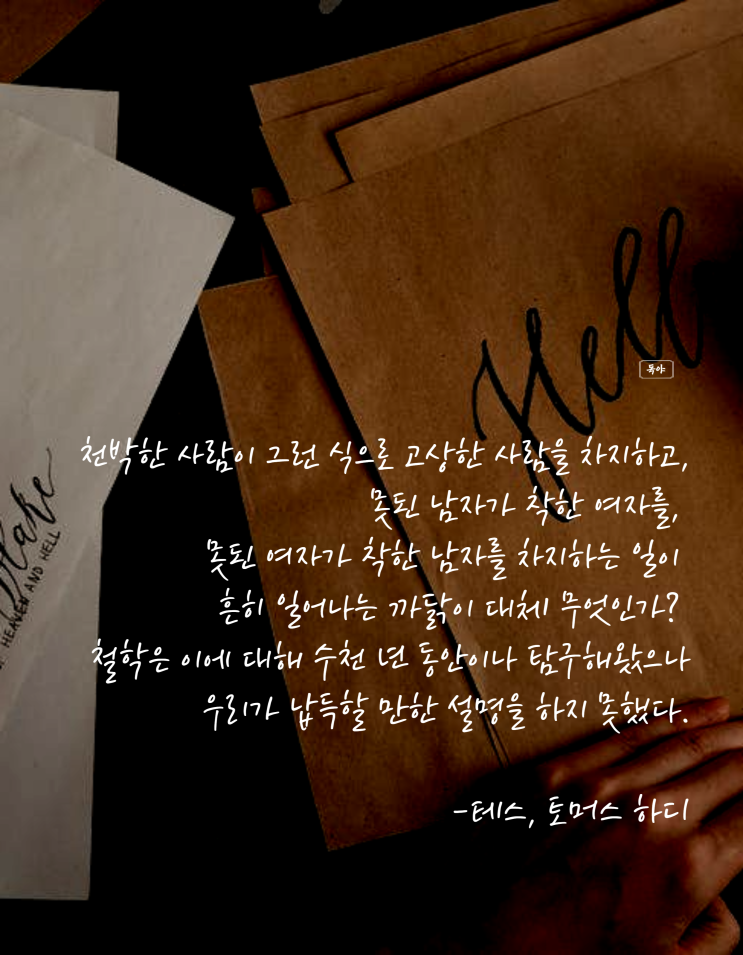 Hell
독야
천박한 사람이 그런 식으로 고상한 사람을 차지하고,
못된 남자가 착한 여자를,
못된 여자가 착한 남자를 차지하는 일이
흔히 일어나는 까닭이 대체 무엇인가?
철학은 이에 대해 수천 년 동안이나 탐구해왔으나
우리가 납득할 만한 설명을 하지 못했다.
-테스, 토머스 하디
Blake
HEAVEN AND HELL